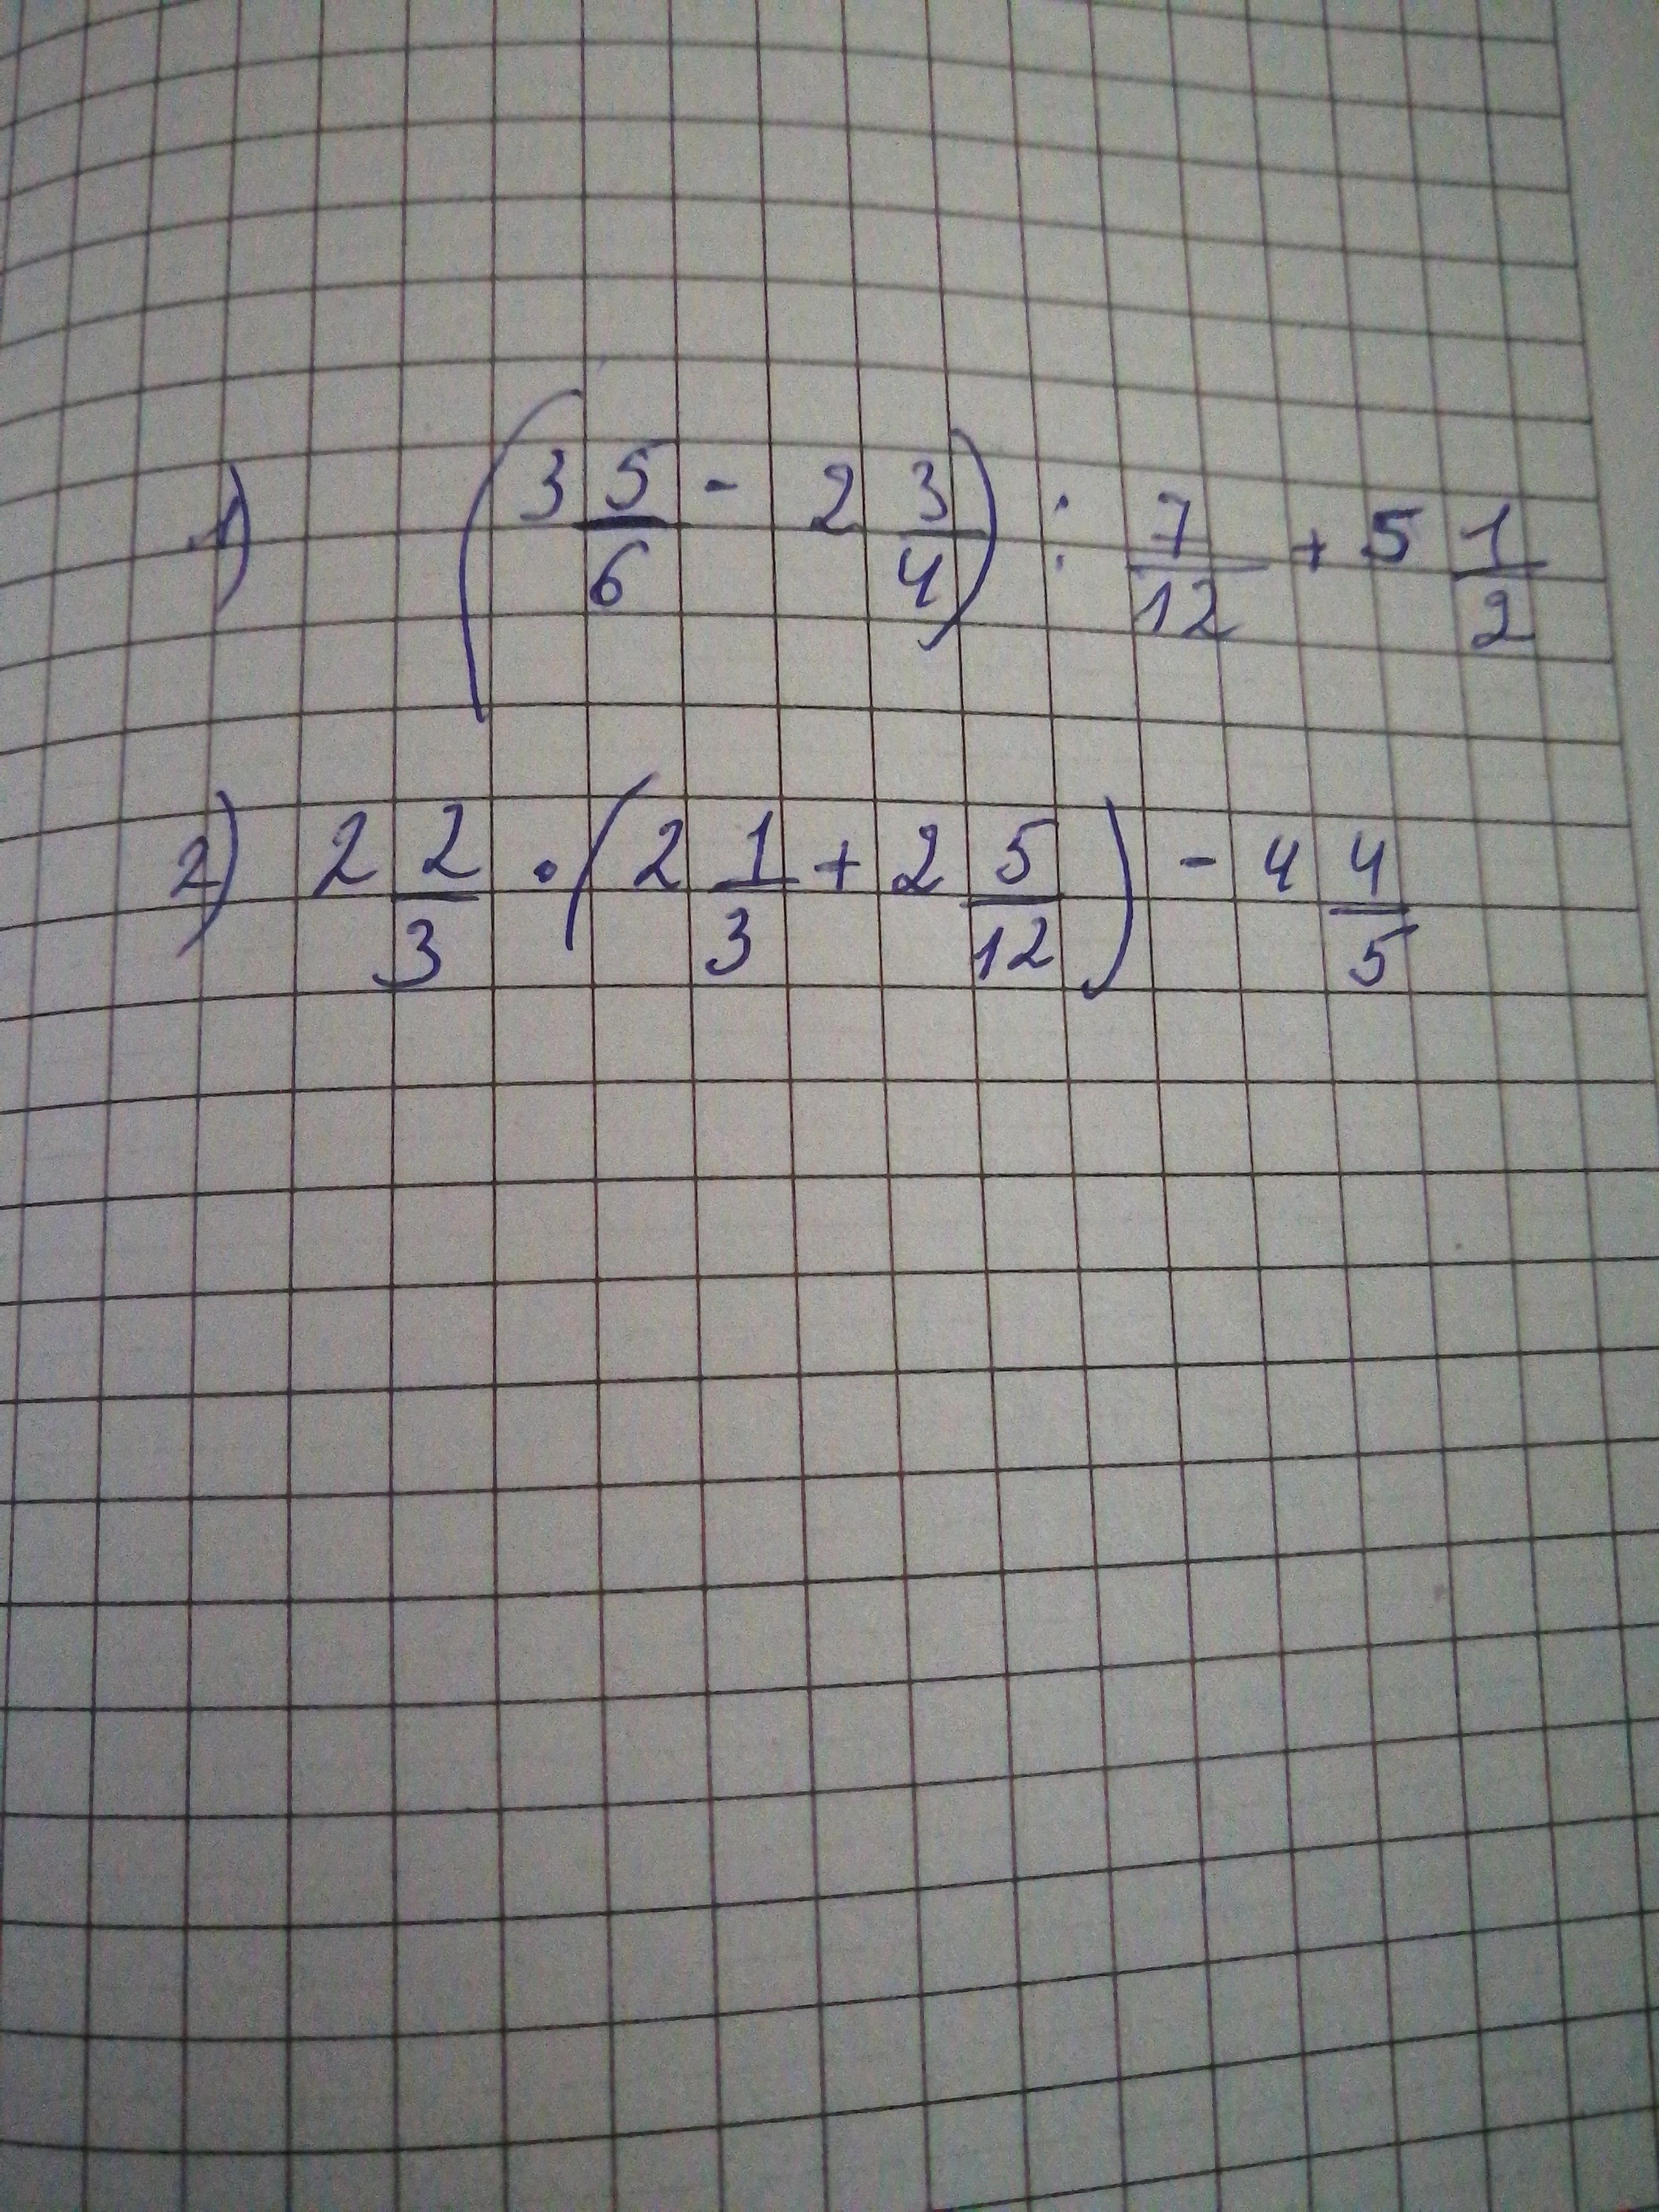 1) (3 5/6 - 2 3/4) : 7/12 + 5 1/2
2) 2 2/3 · (2 1/3 + 2 5/12) - 4 4/5